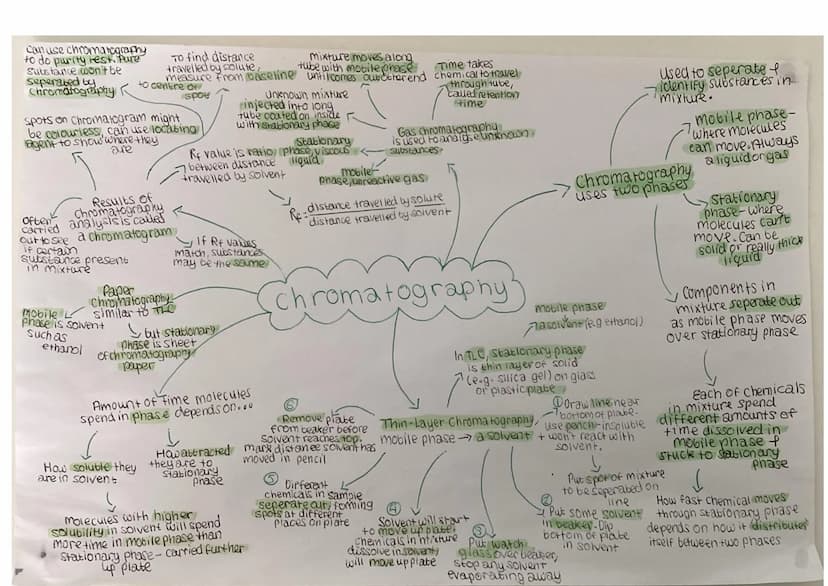 Can use chromatography
to do purity test. Pure
substance won't be
seperated by
chromatography
To find distance
travelled by solute,
measure from baseline
to centre of
spot
Mixture moves along
tube with mobile phase
until comes out other end
Time takes
chemical to travel
through tube,
called retention
time
unknown mixture
injected into long
tube coated on inside
with stationary phase
Gas chromatography
is used to analyse unknown
substances
Stationary
phase, viscous
liquid
Mobile
phase, unreactive gas
spots on chromatogram might
be colourless, can use locating
agent to show where they
are
Rf value is ratio
between distance
travelled by solvent
Rf = distance travelled by solute
distance travelled by solvent
Results of
chromatography
analysis is called
a chromatogram
Often
carried
out to see
if certain
substance present
in mixture
If Rf values
match, substances
may be the same
chromatography
Chromatography
uses two phases
used to seperate &
identify substances in
mixture.
mobile phase-
where molecules
can move. Always
a liquid or gas
Stationary
phase - where
molecules can't
move. Can be
solid or really thick
liquid
Components in
mixture seperate out
as mobile phase moves
over stationary phase
Each of chemicals
in mixture spend
different amounts of
time dissolved in
mobile phase &
stuck to stationary
phase
How fast chemical moves
through stationary phase
depends on how it distributes
itself between two phases
Paper
chromatography
similar to TLC
Mobile
phase is solvent
such as
ethanol
but stationary
phase is sheet
of chromatography
paper
Amount of time molecules
spend in phase depends on...
How soluble they
are in solvent
How attracted
they are to
stationary
phase
Molecules with higher
solubility in solvent will spend
more time in mobile phase than
stationary phase - carried further
up plate
Thin-Layer Chromatography
mobile phase → a solvent
In TLC, stationary phase
is thin layer of solid
(e.g. silica gel) on glass
or plastic plate
mobile phase
is a solvent (e.g ethanol)
① Draw line near
bottom of plate-
use pencil - insoluble
+ won't react with
solvent.
Put spot of mixture
to be seperated on
line
② Put some solvent
in beaker. Dip
bottom of plate
in solvent
③ Put watch
glass over beaker,
stop any solvent
evaporating away
④
Solvent will start
to move up plate.
Chemicals in mixture
dissolve in solvent,
will move up plate
⑤ Different
chemicals in sample
seperate out, forming
spots at different
places on plate
⑥
Remove plate
from beaker before
solvent reaches top.
mark distance solvent has
moved in pencil